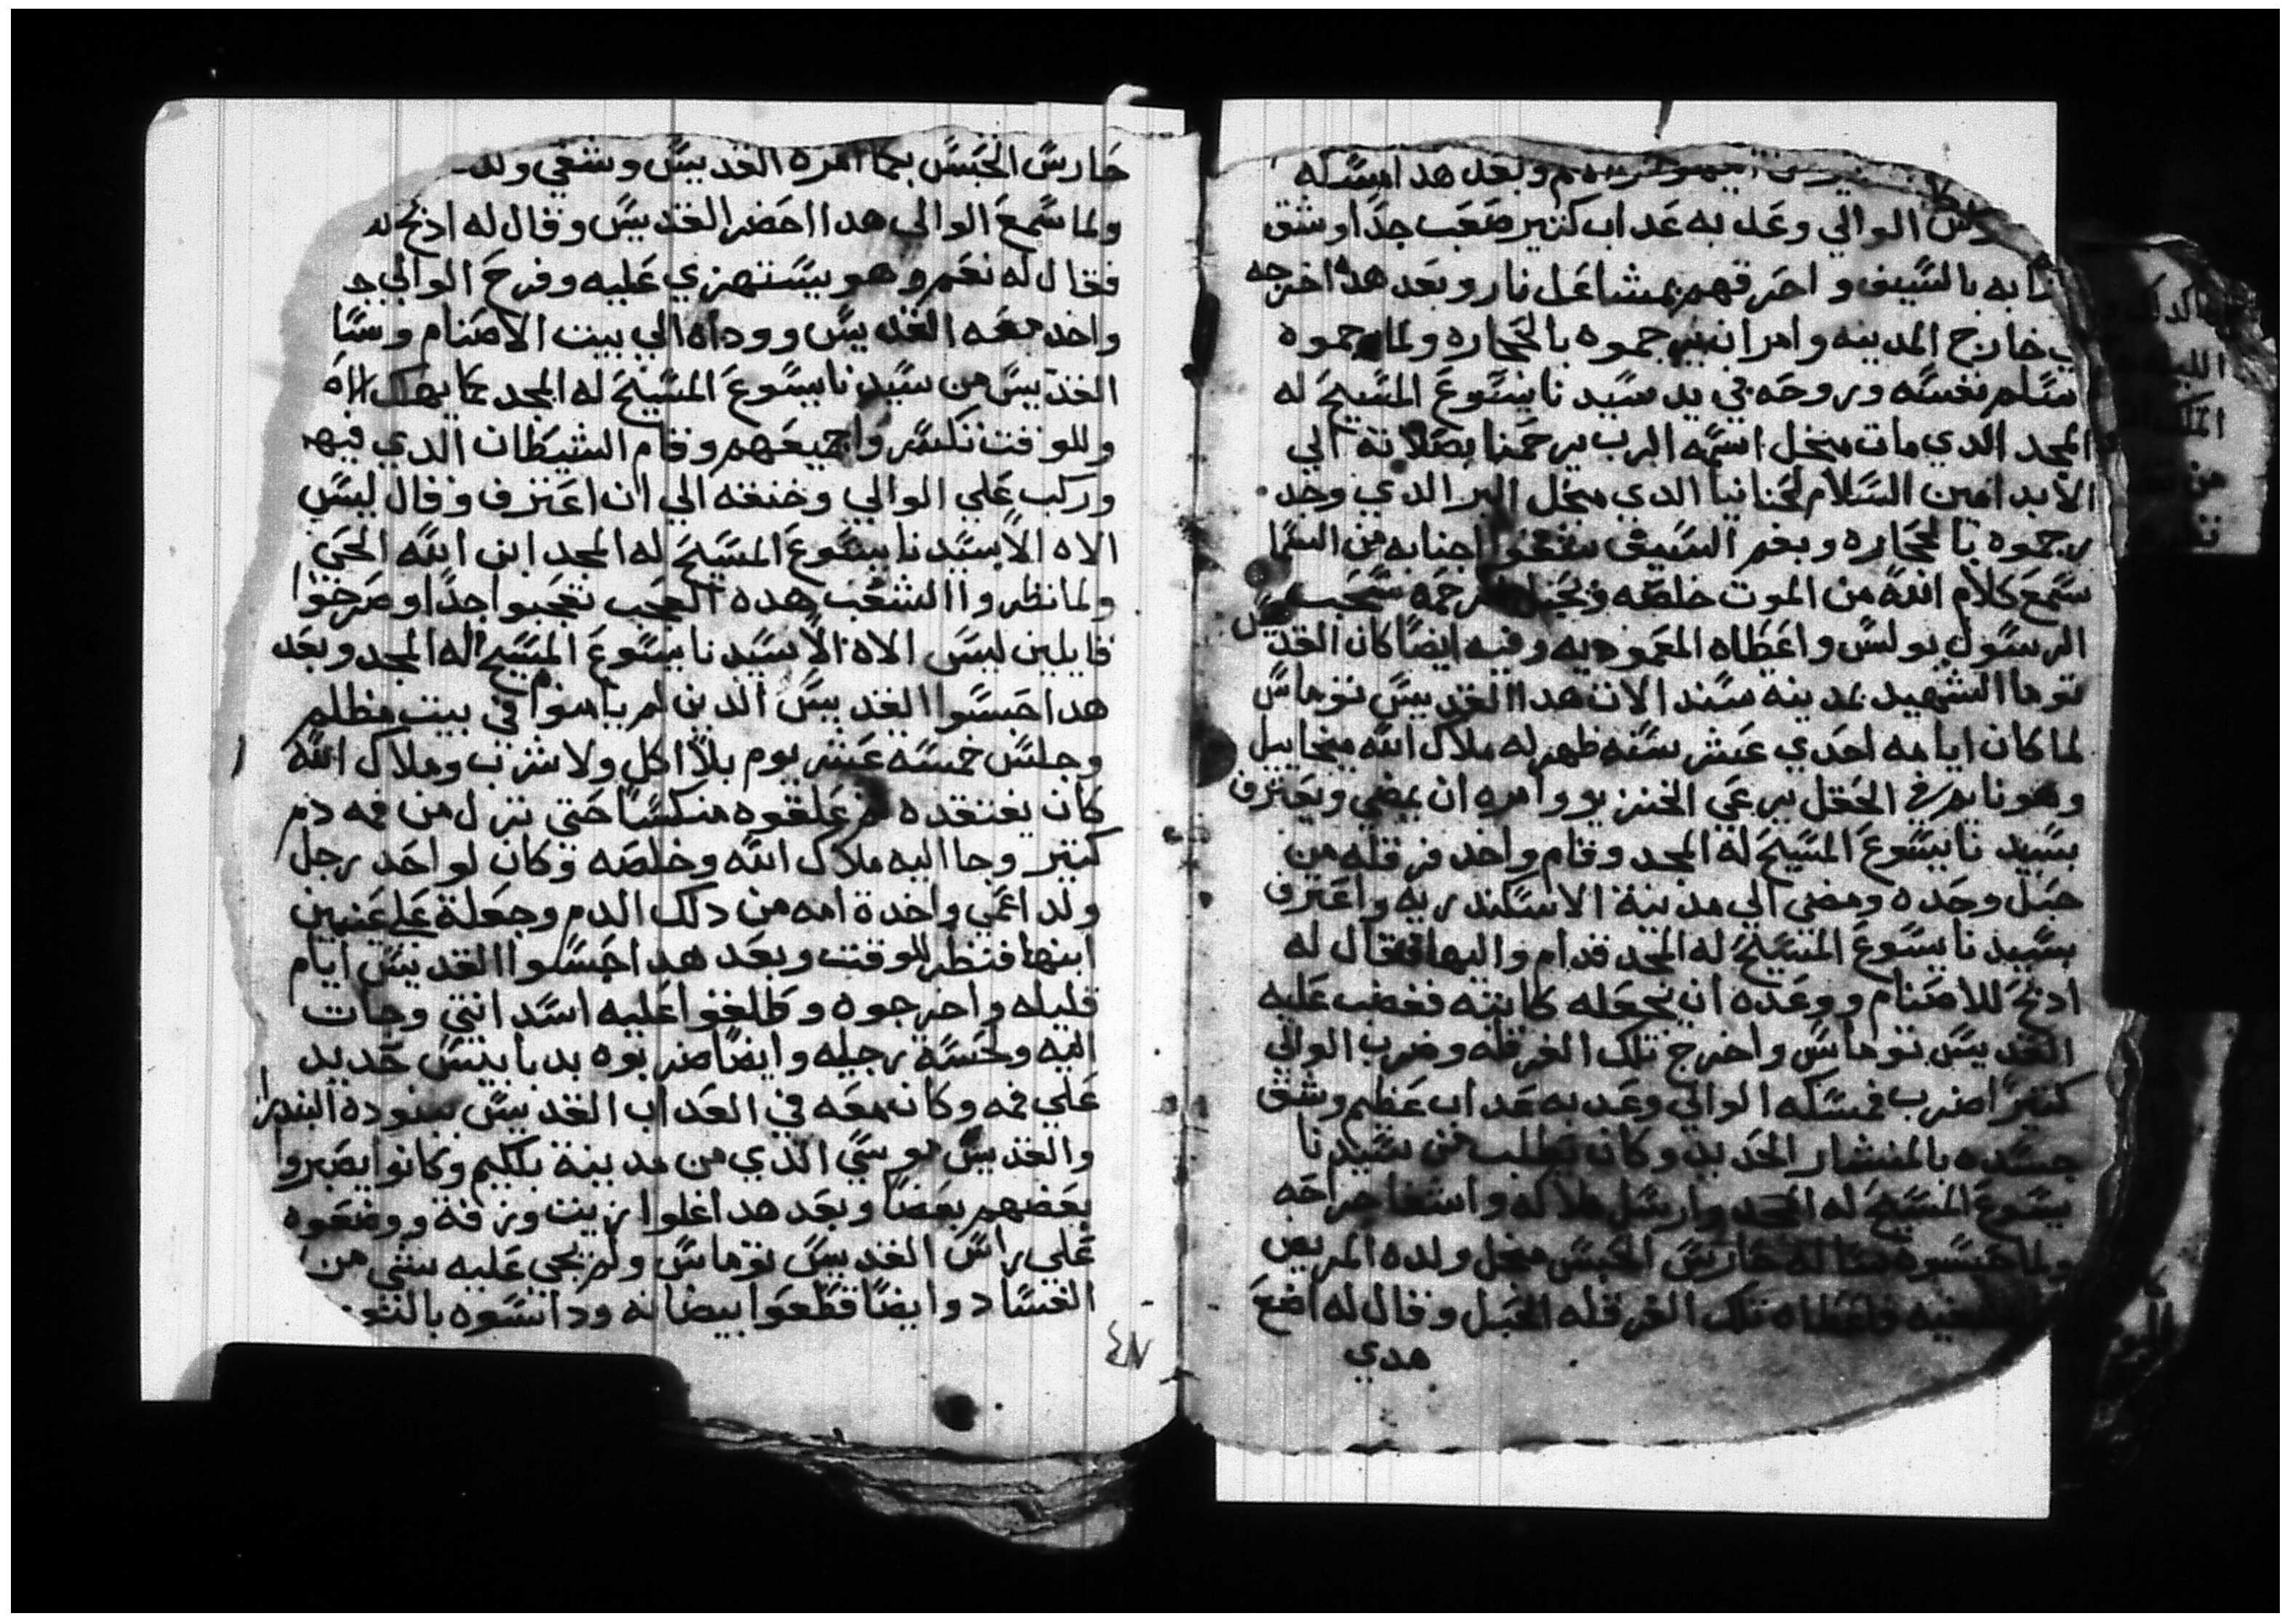 وبعد هدا امسكه
الوالي وعدبه عداب كتير صعب جدا وشق
بالسيف واحرقهم بمشاعل نار وبعد هدا اخرجه
خارج المدينه وامر ان يرجموه بالحجاره ولما رجموه
سلم نفسه وروحه في يد سيدنا يسوع المسيح له
المجد الدي مات منجل اسمه الرب يرحمنا بصلاته الي
الابد امين السلام لحنانيا الدي منجل البر الدي وجد
رجموه بالحجاره وبغير السيف اجنابه من السما
سمع كلام الله من الموت خلصه
الرسول بولس واعطاه المعموديه وفيه ايضا كان القديس
توما الشهيد بمدينه سندالات هدا القديس توماس
لما كان ايامه احدي عشر سنه ظهر له ملاك الله ميخاييل
وهو نايم في الحقل يرعي الخنزير وامره ان يمضي ويعترف
بسيدنا يسوع المسيح له المجد وقام واخد فرقله من
حبل وحده ومضي الي مدينة الاسكندريه واعترف
بسيدنا يسوع المسيح له المجد قدام واليها فقال له
ادبح للاصنام ووعده ان يجعله كابنه فغضب عليه
القديس توماس واخرج تلك الفرقله وضرب الوالي
كتيرا ضرب فمسكه الوالي وعدبه عداب عظيم وشق
جسده بالمنشار الحديد وكان يطلب من سيدنا
يسوع المسيح له المجد وارسل ملاكه واشفا جراحه
ولما حبسوه ساله حارس الحبس منجل ولده المريض
فاعطاه تلك الفرقله الحبل وقال له اضع
هدي
حارس الحبس بما امره القديس وشفي ولد
ولما سمع الوالي هدا احضر القديس وقال له ادبح له
فقال له نعم وهو يستهزي عليه وفرح الوالي جد
واخد معه القديس ووداه الي بيت الاصنام وسا
القديس من سيدنا يسوع المسيح له المجد
وللوقت تكسروا جميعهم وقام الشيطان الدي فيهم
وركب علي الوالي وخنقه الي ان اعترف وقال ليس
الاه الا سيدنا يسوع المسيح له المجد ابن الله الحي
ولما نظروا الشعب هده العجب تعجبوا جدا وصرخوا
قايلين ليس الاه الا سيدنا يسوع المسيح له المجد وبعد
هدا حبسوا القديس الدين لم يامنوا في بيت مظلم
وجلس خمسه عشر يوم بلا اكل ولا شرب وملاك الله
كان يفتقده علقوه منكسا حتي نزل من فمه دم
كتير وجا اليه ملاك الله وخلصه وكان لواحد رجل
ولد اعمي واخدة امه من دلك الدم وجعلة علي عنين
ابنها فنظر للوقت وبعد هدا حبسوا القديس ايام
قليله واخرجوه وطلقوا عليه اسد انتي وجات
اليه ولحسة رجيله وايضا ضربوه بدبابيس حديد
علي فمه وكان معه في العداب القديس بنوده البندرا
والقديس موسي الدي من مدينة بلكيم وكانوا يصبروا
بعضهم بعضا وبعد هدا اغلوا زيت وزفة ووضعوه
علي راس القديس توماس ولم يجي عليه شي من
الفساد وايضا قطعوا بيضاته وداسوه بالنو
٤٨